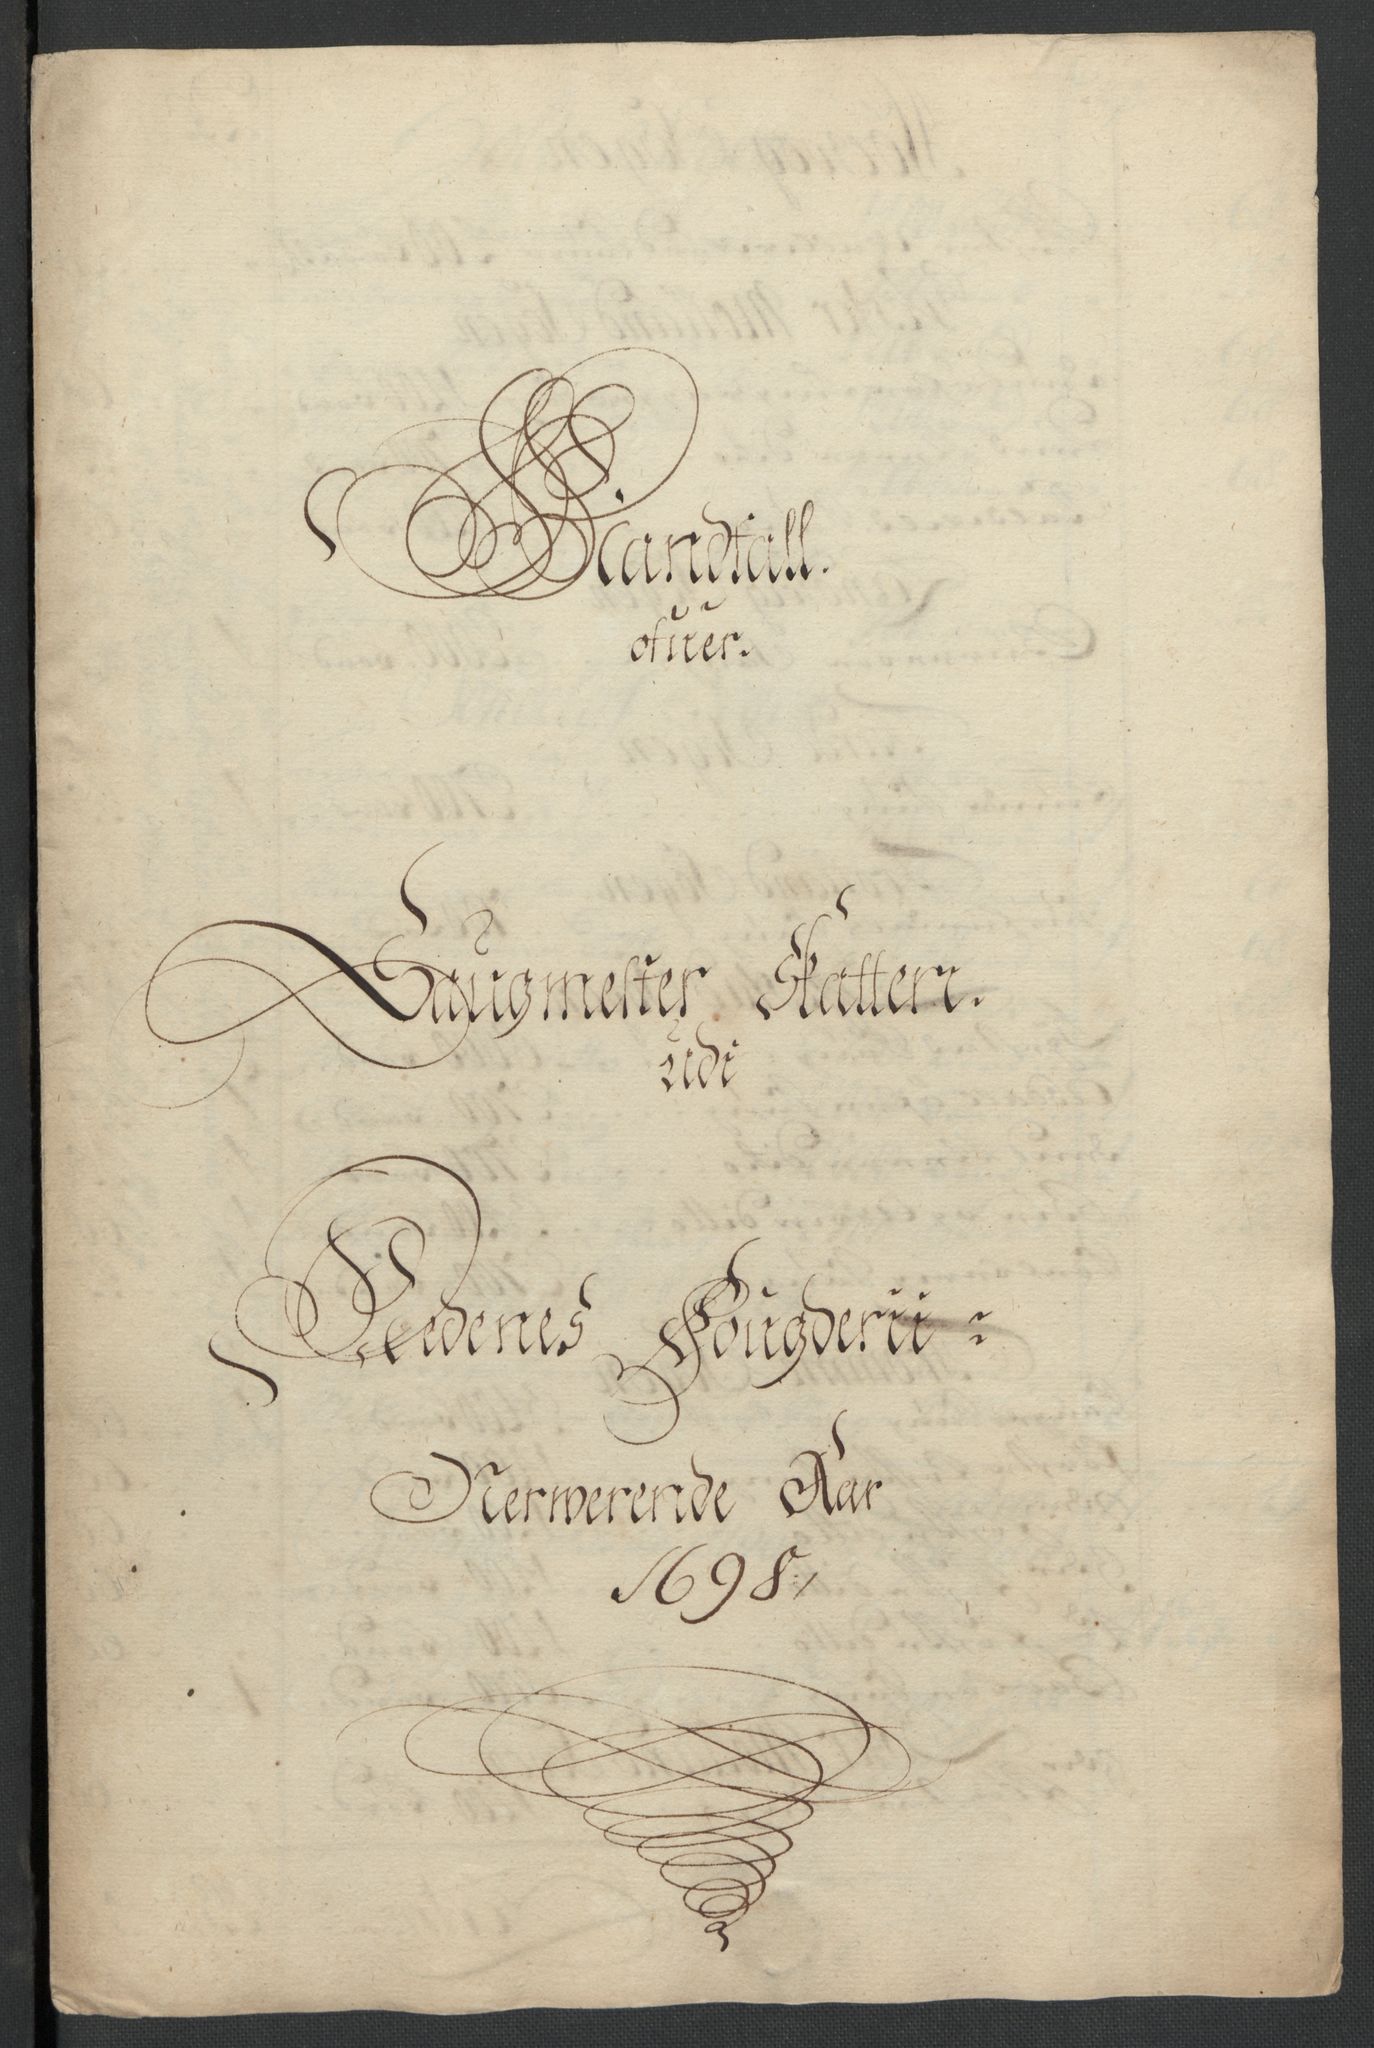 Mandtall.
ofuer.
Saugmester Skatten.
udi
Nedenes Fougderii:
Nerwerende Aar
1698,